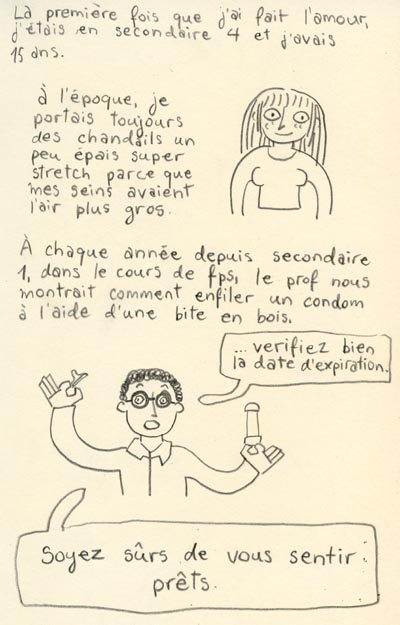 La première fois que j'ai fait l'amour,
j'étais en secondaire 4 et j'avais
15 ans.
à l'époque, je
portais toujours
des chandails un
peu épais super
stretch parce que
mes seins avaient
l'air plus gros.
À chaque année depuis secondaire
1, dans le cours de fps, le prof nous
montrait comment enfiler un condom
à l'aide d'une bite en bois.
...verifiez bien
la date d'expiration.
Soyez sûrs de vous sentir
prêts.